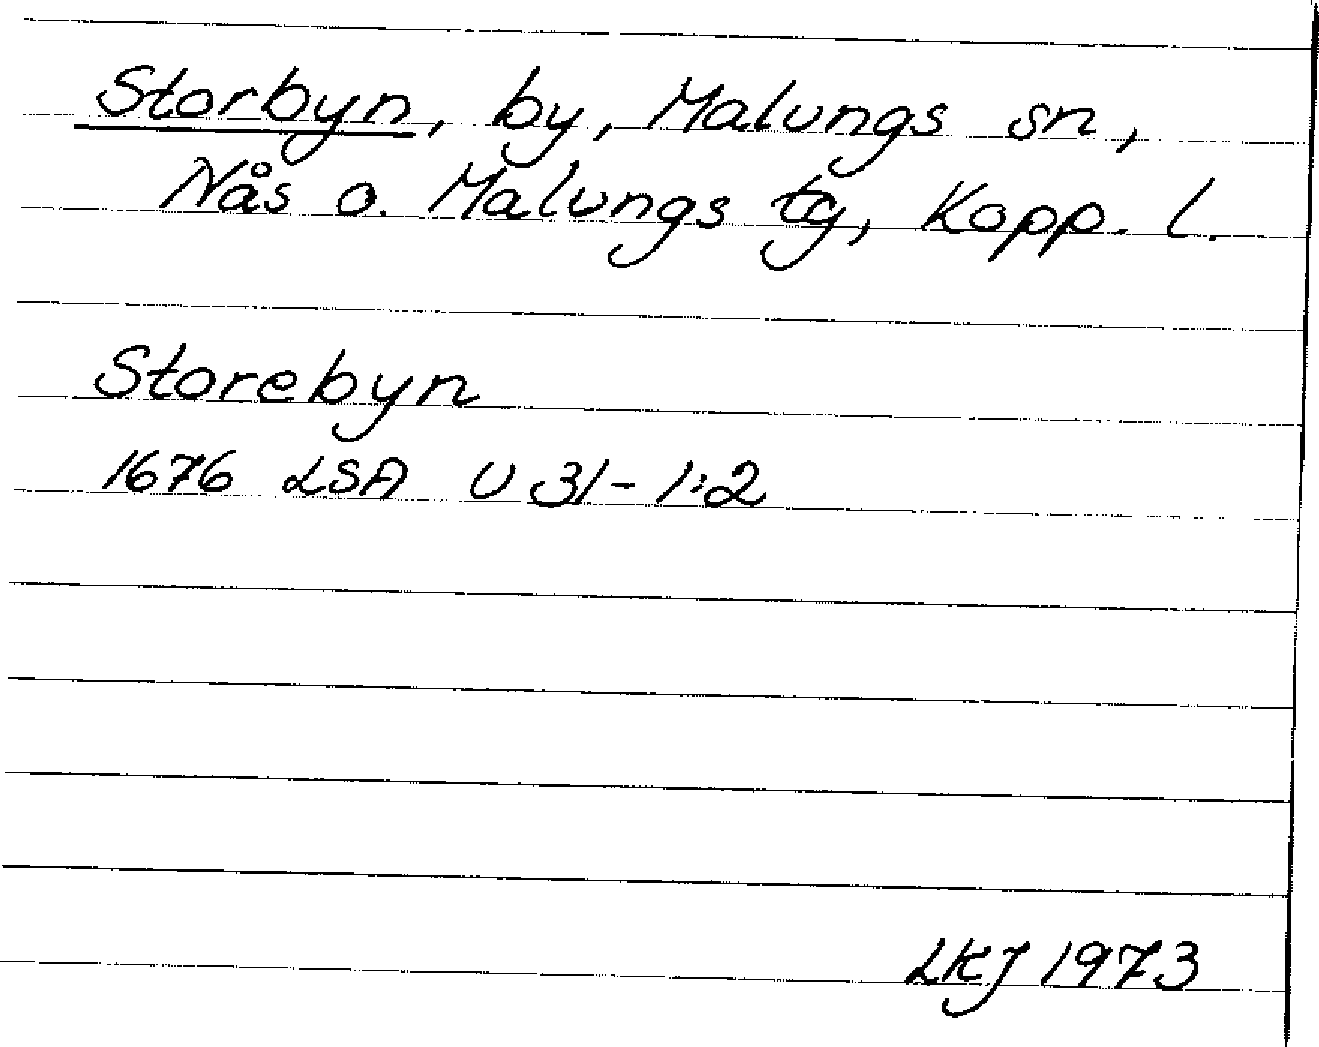 Storbyn, by, Malungs sn,
Nås o. Malungs tg, Kopp. l.
Storebyn
1676 LSA U 31-1:2
LKJ 1973